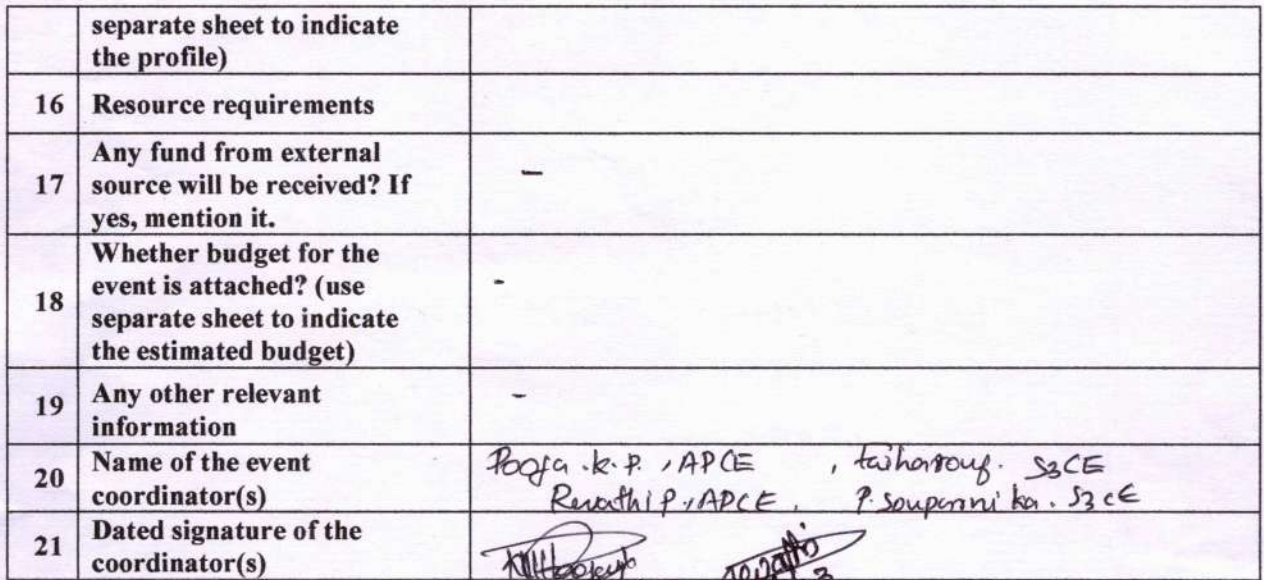 separate sheet to indicate
the profile)
16 Resource requirements
Any fund from external
17 source will be received? If -
yes, mention it.
Whether budget for the
event is attached? (use -
18 separate sheet to indicate
the estimated budget)
19 Any other relevant -
information
20 Name of the event Pooja .k.P. , APCE , S3CE
coordinator(s) Revathi P, APCE, P. Souparnika. S3 CE
21 Dated signature of the
coordinator(s)